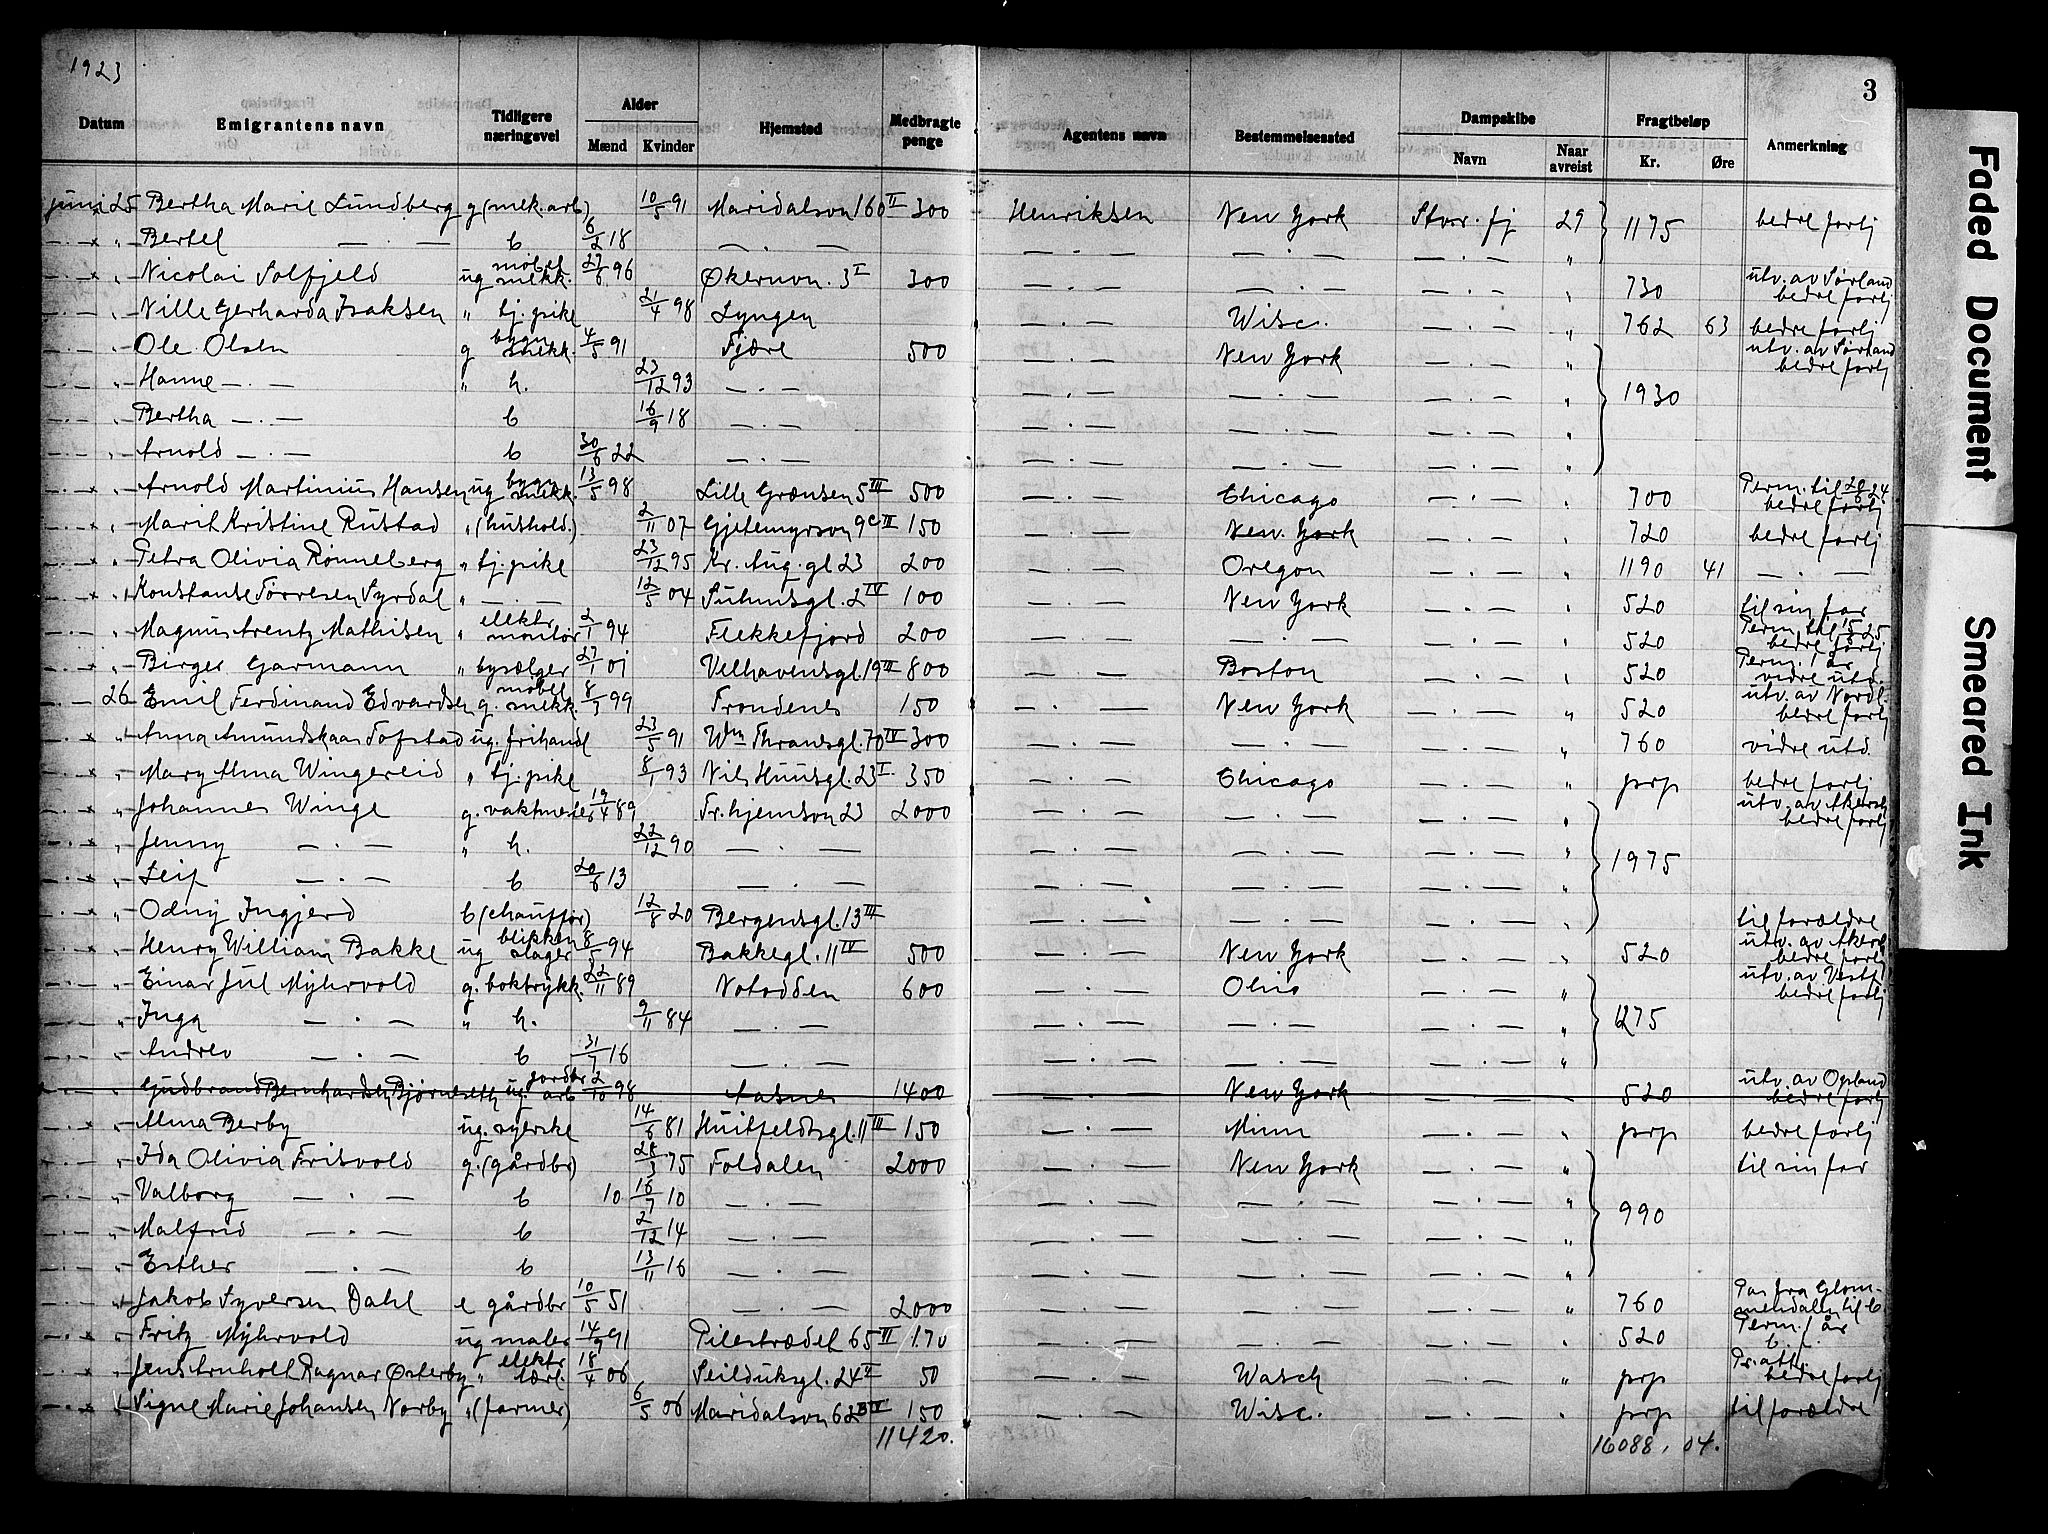 1923
3
Datum Emigrantens navn Tidligere næringsvei Alder Mænd Kvinder Hjemsted Medbragte penge Agentens navn Bestemmelsessted Dampskibe Navn Naar avreist Fragtbeløp Kr. Øre Anmerkning
juni 25 Bertha Marie Lundberg g (mek. arb) 10/5 91 Maridalsvn 160 II 300 Henriksen New York Stvr. fj 29 1175 bedre fortj
—·— " Bertel —·— b 6/2 18 —·— —·— —·— —·— "
—·— " Nicolai Solfjeld ug møbel snekk. 27/6 96 Økernvn. 3 I 300 —·— —·— —·— " 730 utv. av Sørland bedre fortj
—·— " Nille Gerharda Isaksen " tj. pike 21/4 98 Lyngen —·— Wisc. —·— " 762 63 bedre fortj
—·— " Ole Olsen g bygn snekk. 4/5 91 Fjære 500 —·— New York —·— " 1930 utv. av Sørland bedre fortj
—·— " Hanne —·— " h. 23/12 93 —·— —·— —·— —·— "
—·— " Bertha —·— b 16/9 18 —·— —·— —·— —·— "
—·— " Arnold —·— b 30/6 22 —·— —·— —·— —·— "
—·— " Arnold Martinius Hansen ug bygn snekk. 13/5 98 Lille Grænsen 5 III 500 —·— Chicago —·— " 700 Perm. til 24 bedre fortj
—·— " Marit Kristine Rustad " (hushold.) 2/11 07 Gjetemyrsvn 9c II 150 —·— New York —·— " 720 bedre fortj
—·— " Petra Olivia Rønneberg " tj. pike 23/12 95 Kr. Aug. gt 23 200 —·— Oregon —·— " 1190 41 —·—
—·— " Konstanse Torresen Syrdal " —·— 12/5 04 Suhmsgt. 2 IV 100 —·— New York —·— " 520 til sin far
—·— " Magnus Arentz Mathisen " elektr montør 2/1 94 Flekkefjord 200 —·— —·— —·— " 520 Perm. til 25 bedre fortj
—·— " Birger Garmann " bysælger 27/1 01 Velhavensgt. 19 III 800 —·— Boston —·— " 520 Perm. 1 år vidre utd.
—·— 26 Emil Ferdinand Edvardsen g. møbel snekk. 8/3 99 Trondenes 150 —·— New York —·— " 520 utv. av Nordl. bedre fortj
—·— " Anna Amundskaas Tofstad ug. frihandl 23/5 91 Wm Thranesgt. 70 IV 300 —·— —·— —·— " 760 vidre utd.
—·— " Mary Alma Wingereid " tj. pike 8/1 93 Nils Huusgt. 23 I. 350 —·— Chicago —·— " prp bedre fortj
—·— " Johannes Winge g. vaktmester 19/4 89 Fr.hjemsvn 23 2000 —·— —·— —·— " 1975 utv. av Akersh bedre fortj
—·— " Jenny —·— " h. 22/12 90 —·— —·— —·— —·— "
—·— " Leif —·— b 20/6 13 —·— —·— —·— —·— "
—·— " Odny Ingjerd b (chauffør) 12/8 20 Bergensgt. 13 III —·— —·— —·— " til forældre
—·— " Henry William Bakke ug blikken slager 8/5 94 Bakkegt. 11 IV 500 —·— New York —·— " 520 utv. av Akersh bedre fortj
—·— " Einar Jul Myhrvold g. boktrykk. 22/11 89 Notodden 600 —·— Ohio —·— " 1275 utv. av Vestf bedre fortj
—·— " Inga —·— " h. 9/11 84 —·— —·— —·— —·— "
—·— " Andrev —·— b 31/7 16 —·— —·— —·— —·— "
—·— " Gudbrand Bernhardsen Bjørneseth ug. jordbr arb 2/10 98 Aasnes 1400 —·— New York —·— " 520 utv. av Opland bedre fortj
—·— " Alma Berby ug. syerske 14/6 81 Huitfeldtsgt. 11 III 150 —·— Minn —·— " prp bedre fortj
—·— " Ida Olivia Frisvold g. (gårdbr) 28/3 75 Foldalen 2000 —·— New York —·— " 990 til sin far
—·— " Valborg —·— b 10 16/7 10 —·— —·— —·— —·— "
—·— " Malfrid —·— b 2/12 14 —·— —·— —·— —·— "
—·— " Esther —·— b 13/11 16 —·— —·— —·— —·— "
—·— " Jakob Syversen Dahl e gårdbr 10/5 51 —·— 2000 —·— —·— —·— " 760 Pas fra Glommendalen til b
—·— " Fritz Myhrvold ug maler 14/9 91 Pilestrædet 65 III 170 —·— —·— —·— " 520 Perm. 1 år b. f.
—·— " Jens Arnholt Ragnar Østerby " elektr lærl. 18/4 06 Seilduksgt. 24 II 50 —·— Wasch —·— " prp Pr. att. bedre fortj
—·— " Signe Marie Johansen Norby " (farmer) 6/5 06 Maridalsvn 62B IV 150 —·— Wisc. —·— " prp til forældre
11420. 16088,04.
Faded Document
Smeared Ink